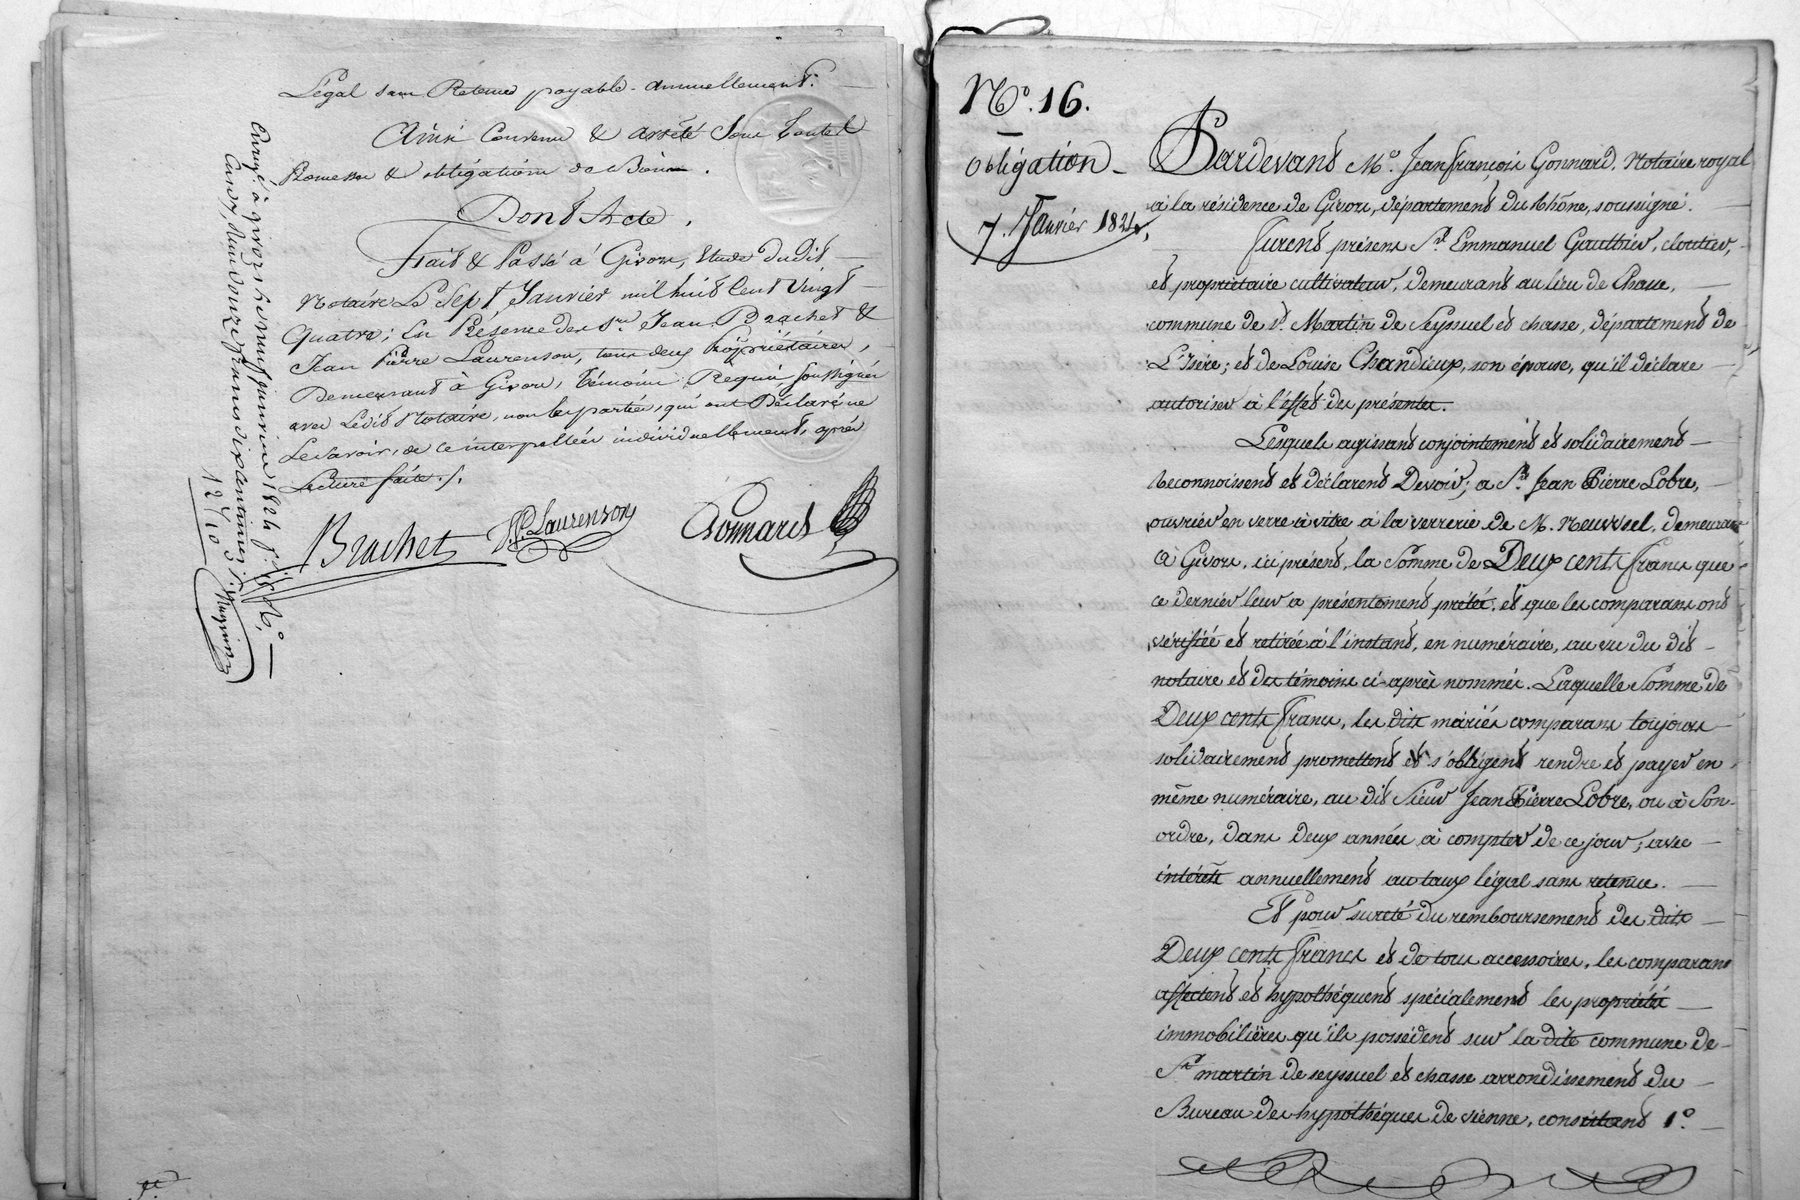 Légal sans Retenue payable annuellement.
Ainsi Convenu & arrêté Sous toutes
Promesses & obligations de Biens.
Dont Acte.
Fait & Passé à Givors, Etude dudit
Notaire Le Sept Janvier mil huit Cent Vingt
Quatre; En Présence des Srs Jean Brachet &
Jean Pierre Laurenson, tous deux Propriétaires,
Demeurant à Givors, Témoins Requis, soussignés
avec Ledit Notaire, non les parties, qui ont Déclaré ne
Le savoir, de ce interpellées individuellement, après
Lecture faite./.
Brachet J.P. Laurenson Gonnard
Enregé à givors le neuf janvier 1824 fo
12/10
No. 16.
Obligation
7. Janvier 1824,
Pardevant Me. Jean françois Gonnard, Notaire royal
à la résidence de Givors, département du Rhône, soussigné.
furent présens Sr. Emmanuel Gauthier, cloutier,
et propriétaire cultivateur, demeurant au lieu de Chasse,
commune de St. Martin de Seyssuel et chasse, département de
L'Isère; et de Louise Chandieux, son épouse, qu'il déclare
autoriser à l'effet des présentes.
Lesquels agissant conjointement et solidairement
Reconnoissent et déclarent Devoir; à Sr. Jean Pierre Lobre,
ouvrier en verre à vitre à la verrerie de M. Neuvesel, demeurant
à Givors, ici présent, la Somme de Deux cents francs que
ce dernier leur a présentement prêtée, et que les comparans ont
vérifiée et retirée à l'instant, en numéraire, au vu du dit
notaire et des témoins ci-après nommés. Laquelle Somme de
Deux cents francs, les dits mariés comparans toujours
solidairement promettent et s'obligent rendre et payer en
même numéraire, au dit Sieur Jean Pierre Lobre, ou à Son
ordre, dans deux années à compter de ce jour; avec
intérêts annuellement au taux légal sans retenue.
Et pour sureté du remboursement des dits
Deux cents francs et de tous accessoires, les comparans
affectent et hypothéquent spécialement les propriétés
immobilières qu'ils possèdent sur la dite commune de
St martin de seyssuel et chasse arrondissement du
Bureau des hypothèques de vienne, consistant 1.o